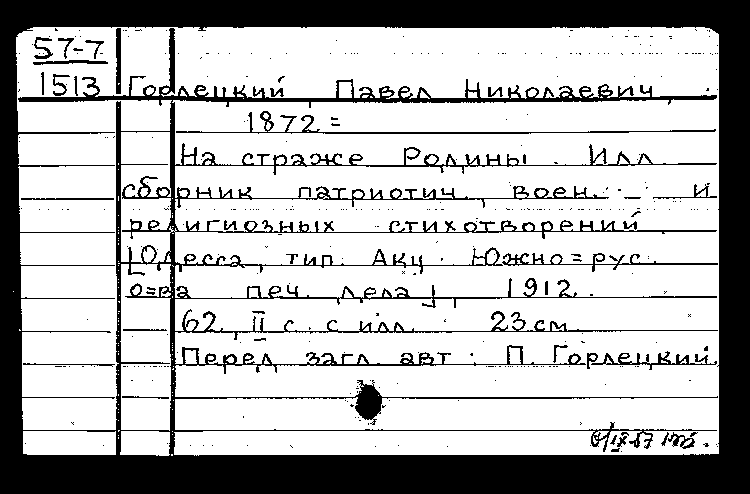 57-7
1513 Горлецкий, Павел Николаевич,
1872=
На страже Родины. Илл.
сборник патриотич., воен. и
религиозных стихотворений.
[Одесса, тип. Акц. Южно=рус.
о=ва печ. дела], 1912.
62, II с. с илл. 23 см.
Перед загл. авт.: П. Горлецкий.